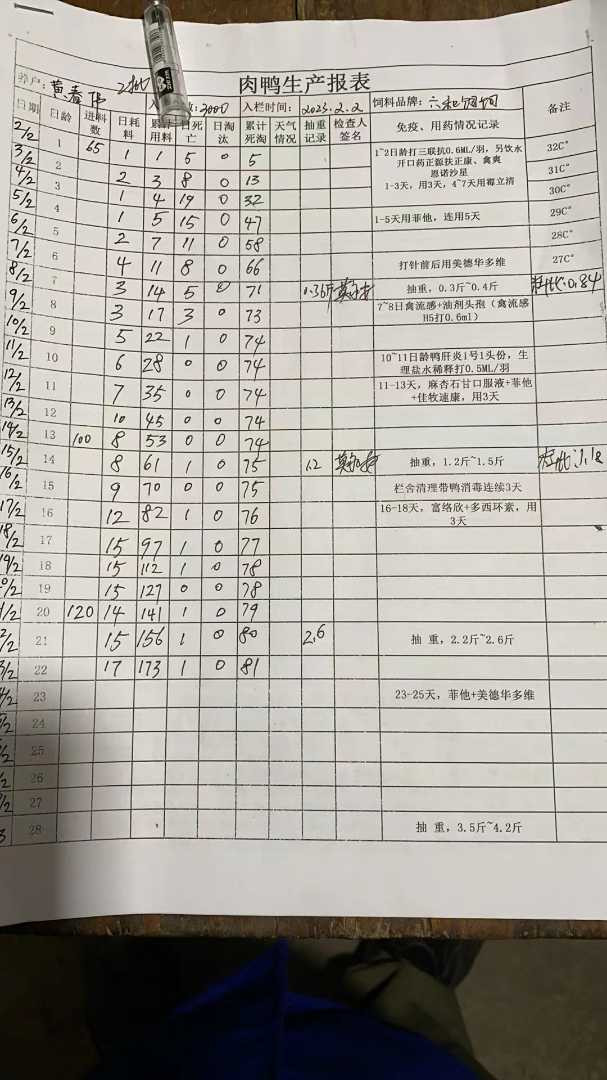 肉鸭生产报表
养户: 黄春伟 2批 数:3000 入栏时间: 2023.2.2 饲料品牌: 六和饲料
日期 日龄 进料数 日耗料 累计用料 日死亡 日淘汰 累计死淘 天气情况 抽重记录 检查人签名 免疫、用药情况记录 备注
2/2 1 65 1 1 5 0 5 1~2日龄打三联抗0.6ML/羽,另饮水开口药正源扶正康、禽爽 恩诺沙星 32C°
3/2 2 2 3 8 0 13 1-3天,用3天,4~7天用霉立清 31C°
4/2 3 1 4 19 0 32 30C°
5/2 4 1 5 15 0 47 1-5天用菲他,连用5天 29C°
6/2 5 2 7 11 0 58 28C°
7/2 6 4 11 8 0 66 打针前后用美德华多维 27C°
8/2 7 3 14 5 0 71 0.36斤 抽重,0.3斤~0.4斤 料比:0.84
9/2 8 3 17 3 0 73 7~8日禽流感+油剂头孢(禽流感H5打0.6ml)
10/2 9 5 22 1 0 74
11/2 10 6 28 0 0 74 10~11日龄鸭肝炎1号1头份,生理盐水稀释打0.5ML/羽
12/2 11 7 35 0 0 74 11-13天,麻杏石甘口服液+菲他+佳牧速康,用3天
13/2 12 10 45 0 0 74
14/2 13 100 8 53 0 0 74
15/2 14 8 61 1 0 75 1.2 抽重,1.2斤~1.5斤 料比:1.18
16/2 15 9 70 0 0 75 栏舍清理带鸭消毒连续3天
17/2 16 12 82 1 0 76 16-18天,富络欣+多西环素,用3天
18/2 17 15 97 1 0 77
19/2 18 15 112 1 0 78
0/2 19 15 127 0 0 78
1/2 20 120 14 141 1 0 79
2/2 21 15 156 1 0 80 2.6 抽 重,2.2斤~2.6斤
3/2 22 17 173 1 0 81
4/2 23 23-25天,菲他+美德华多维
24
25
26
27
28 抽 重,3.5斤~4.2斤